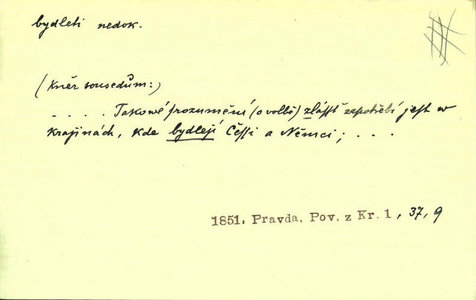 bydleti nedok.
(Kněr sousedům:)
. . . . Takowé srozumění (o volbě) zlášť zapotřebí jest w
krajinách, kde bydlejí Češi a Němci; . . .
1851. Pravda, Pov. z Kr. 1, 37, 9